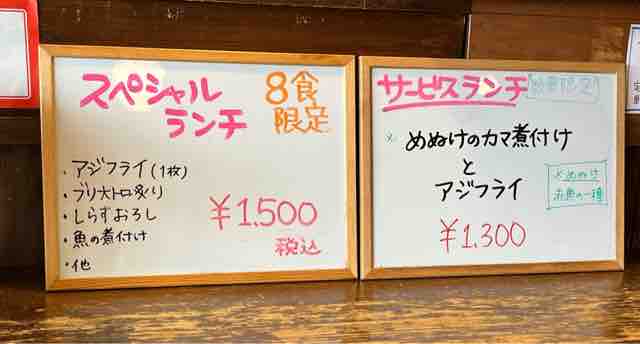 スペシャル
ランチ
8食
限定
・アジフライ(1枚)
・ブリ大トロ炙り
・しらすおろし
・魚の煮付け
・他
¥1,500
税込
サービスランチ
数量限定
※ めぬけのカマ煮付け
と
アジフライ
※めぬけ
赤魚の一種
¥1,300